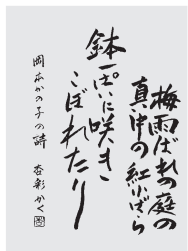 梅雨ばれの庭の
真中の紅小ばら
鉢一ぱいに咲きて
こぼれたり
岡本かの子の詩 杏彩かく